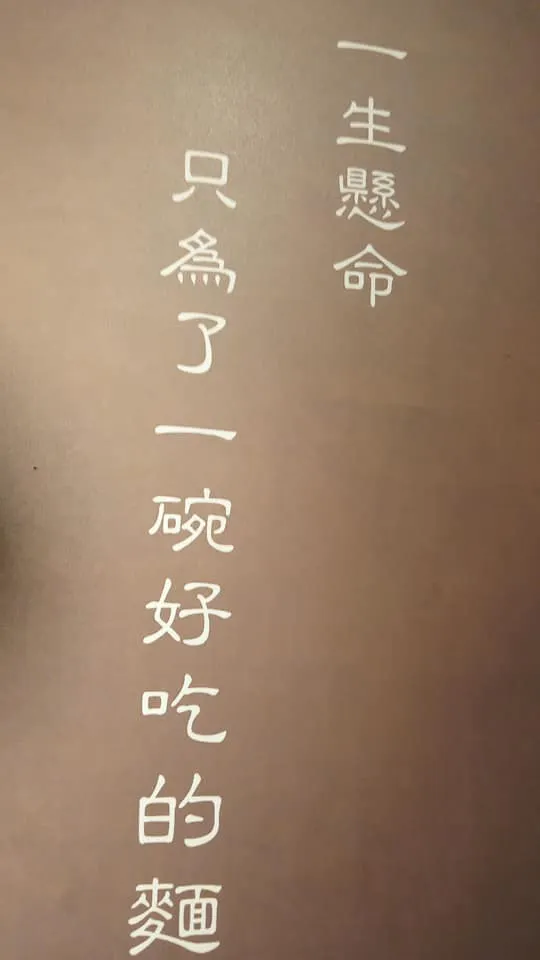 一生懸命
只為了一碗好吃的麵